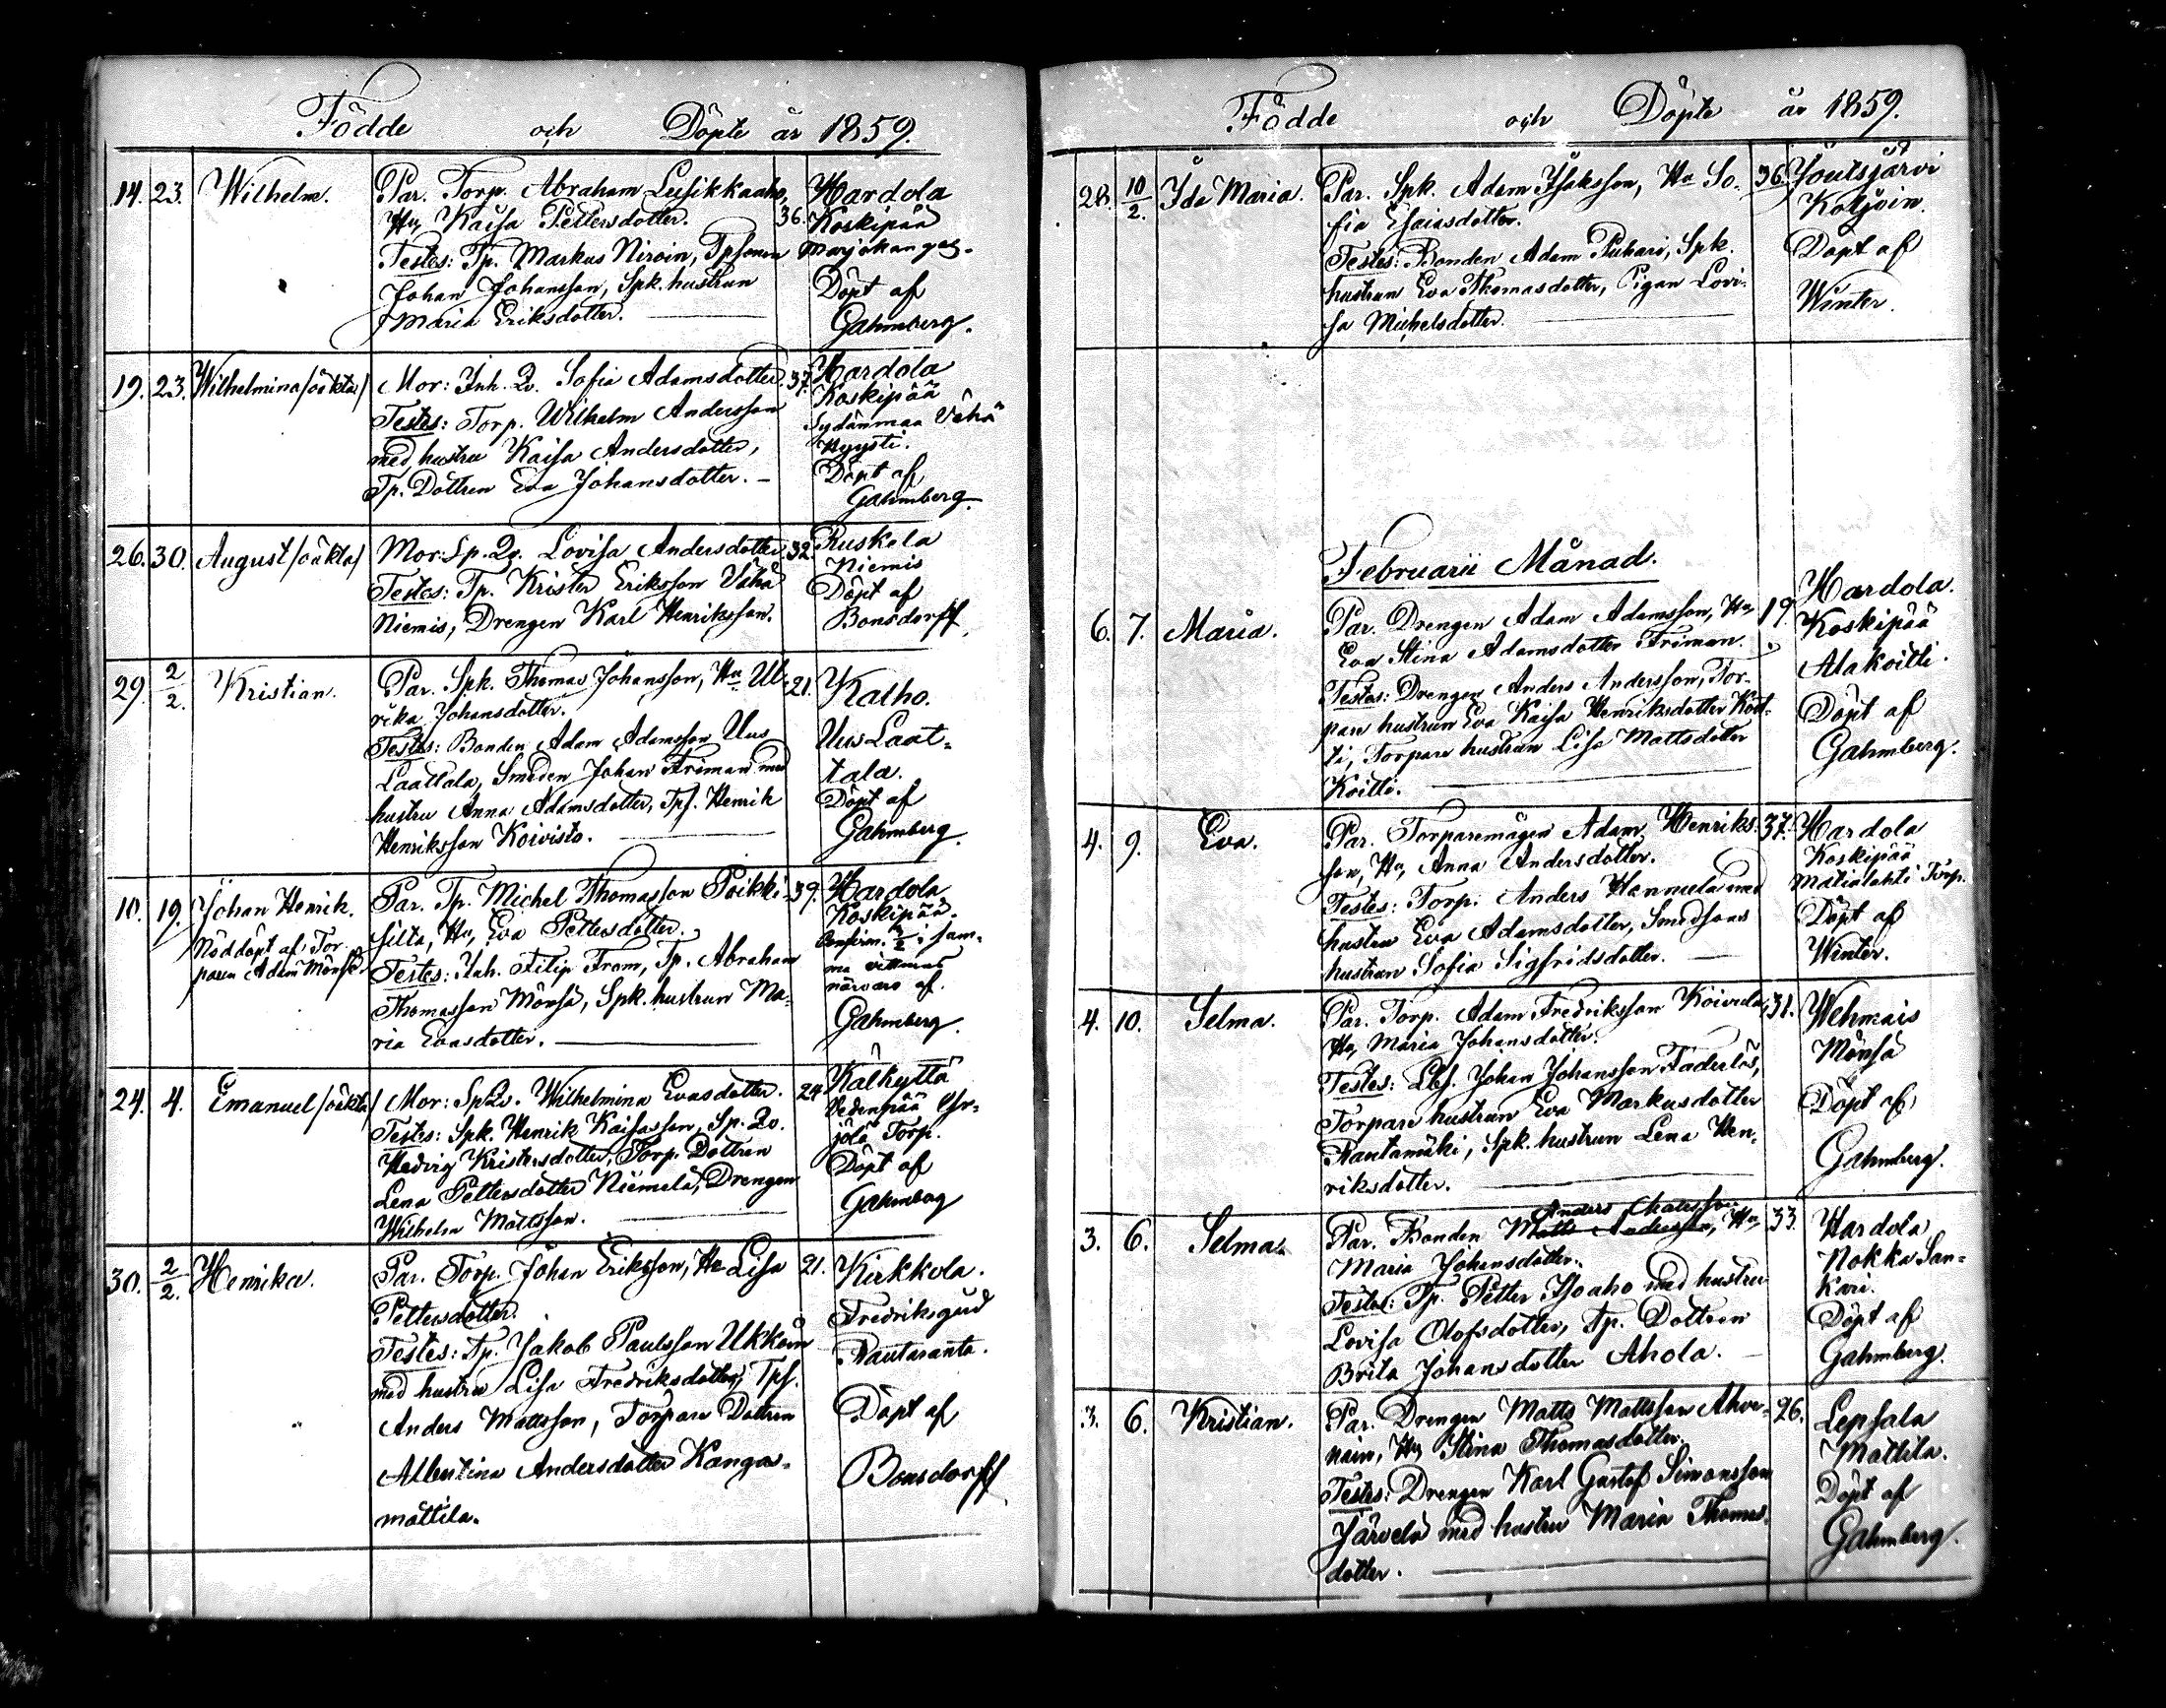 Födde och Döpte år 1859.
14. 23. Wilhelm. Par. Torp. Abraham Lusikkaaho, 36. Hardola
Hu, Kaisa Pettersdotter. Koskipää
Testes: Tp. Markus Niroin, Tpsonen Marjokangas.
Johan Johansson, Spk. hustrun Döpt af
Maria Eriksdotter. Gahmberg.
19. 23. Wilhelmina /oäkta/ Mor: Inh. Qv. Sofia Adamsdotter. 37. Hardola
Testes: Torp. Wilhelm Andersson Koskipää
med hustru Kaisa Andersdotter, Sydänmaa Vähä
Tp. Dottren Eva Johansdotter. Kyysti.
Döpt af
Gahmberg.
26. 30. August /oäkta/ Mor: Sp. Qv. Lovisa Andersdotter. 32. Ruskela
Testes: Tp. Krister Eriksson Vähä Niemis
Niemis, Drengen Karl Henriksson. Döpt af
Bonsdorff.
29. 2/2. Kristian. Par. Spk. Thomas Johansson, Hu Ul- 21. Kalho.
rika Johansdotter. Uus Laat-
Testes: Bonden Adam Adamsson Uus tala.
Laattala, Smeden Johan Friman med Döpt af
hustru Anna Adamsdotter, Tps. Henrik Gahmberg.
Henriksson Koivisto.
10. 19. Johan Henrik. Par. Tp. Michel Thomasson Poikki- 39. Hardola
Nöddöpt af Tor- silta, Hu, Eva Pettersdotter. Koskipää.
paren Adam Mönsä Testes: Inh. Filip From, Tp. Abraham Confirm. i sam-
Thomasson Mönsä, Spk. hustrun Ma- ma vittnens
ria Evasdotter. närvaro af
Gahmberg.
24. 4. Emanuel /oäkta/ Mor: Sp Qv. Wilhelmina Evasdotter. 24. Kalkyttä
Testes: Spk. Henrik Kaisasson, Sp. Qv. Vedenpää
Hedvig Kristersdotter, Torp. Dottren jölä Torp.
Lena Pettersdotter Niemelä, Drengen Döpt af
Wilhelm Mattsson. Gahmberg
30. 2/2. Henrika. Par. Torp. Johan Eriksson, Hu Lisa 21. Kirkkola.
Pettersdotter. Fredriksgud
Testes: Tp. Jakob Paulsson Ukkoin Rautaranta.
med hustru Lisa Fredriksdotter, Tps. Döpt af
Anders Mattsson, Torpare Dottren Bonsdorff
Albertina Andersdotter Kangas-
mattila.
Födde och Döpte år 1859.
28. 10/2. Ida Maria. Par. Spk. Adam Isaksson, Hu So- 36. Joutsjärvi
fia Esaiasdotter. Koljoin.
Testes: Bonden Adam Puhari, Spk. Döpt af
hustrun Eva Thomasdotter, Pigan Lovi- Winter.
sa Michelsdotter.
Februarii Månad.
6. 7. Maria. Par. Drengen Adam Adamsson, Hu 19. Hardola.
Eva Stina Adamsdotter Friman. Koskipää
Testes: Drengen Anders Andersson, Tor- Alakoitti.
pare hustrun Eva Kaisa Henriksdotter Koit- Döpt af
ti, Torpare hustrun Lisa Mattsdotter Gahmberg.
Koitti.
4. 9. Eva. Par. Torparemågen Adam Henriks- 37. Hardola
son, Hu, Anna Andersdotter. Koskipää
Testes: Torp. Anders Hannula med Matialahti Torp.
hustru Eva Adamsdotter, Smedsons Döpt af
hustrun Sofia Sigfridsdotter. Winter.
4. 10. Selma. Par. Torp. Adam Fredriksson Koivula, 31. Wehmais
Hu, Maria Johansdotter. Mönsä
Testes: Johan Johansson Faderlös, Döpt af
Torpare hustrun Eva Markusdotter Gahmberg.
Rantamäki, Spk. hustrun Lena Hen-
riksdotter.
Anders Matsson
3. 6. Selma. Par. Bonden Matts Andersson, Hu, 33. Hardola
Maria Johansdotter. Nokka San-
Testes: Tp. Petter Isoaho med hustru kari.
Lovisa Olofsdotter, Tp. Dottren Döpt af
Brita Johansdotter Ahola. Gahmberg.
3. 6. Kristian. Par. Drengen Matts Mattsson Ahve- 26. Lepsala
nain, Hu, Stina Thomasdotter. Mattila.
Testes: Drengen Karl Gustaf Simonsson Döpt af
Järvelä med hustru Maria Thomas- Gahmberg.
dotter.